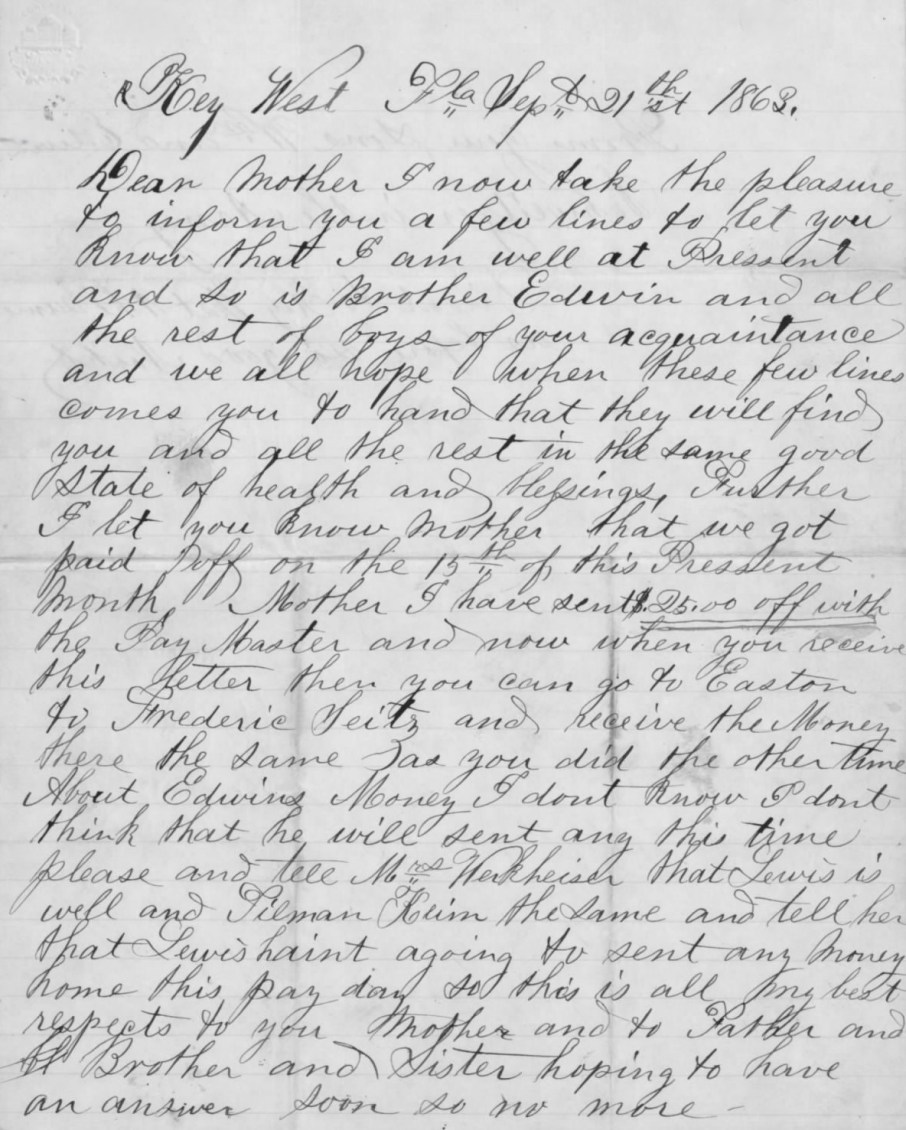 Key West Fla Sept 21st 1863.
Dear Mother I now take the pleasure
to inform you a few lines to let you
know that I am well at Pressent
and so is Brother Edwin and all
the rest of boys of your acquaintance
and we all hope when these few lines
comes you to hand that they will find
you and all the rest in the same good
state of health and blessings, Further
I let you know Mother that we got
paid off on the 15th of this Pressent
month, Mother I have sent $.25.00 off with
the Pay Master and now when you receive
this letter then you can go to Easton
to Frederic Seitz and receive the Money
there the same as you did the other time
About Edwins Money I dont know I dont
think that he will sent any this time
please and tell Mrs Werkheiser that Lewis is
well and Tilman Keim the same and tell her
that Lewis haint agoing to sent any money
home this pay day so this is all my best
respects to you Mother and to Father and
Brother and Sister hoping to have
an answer soon so no more -